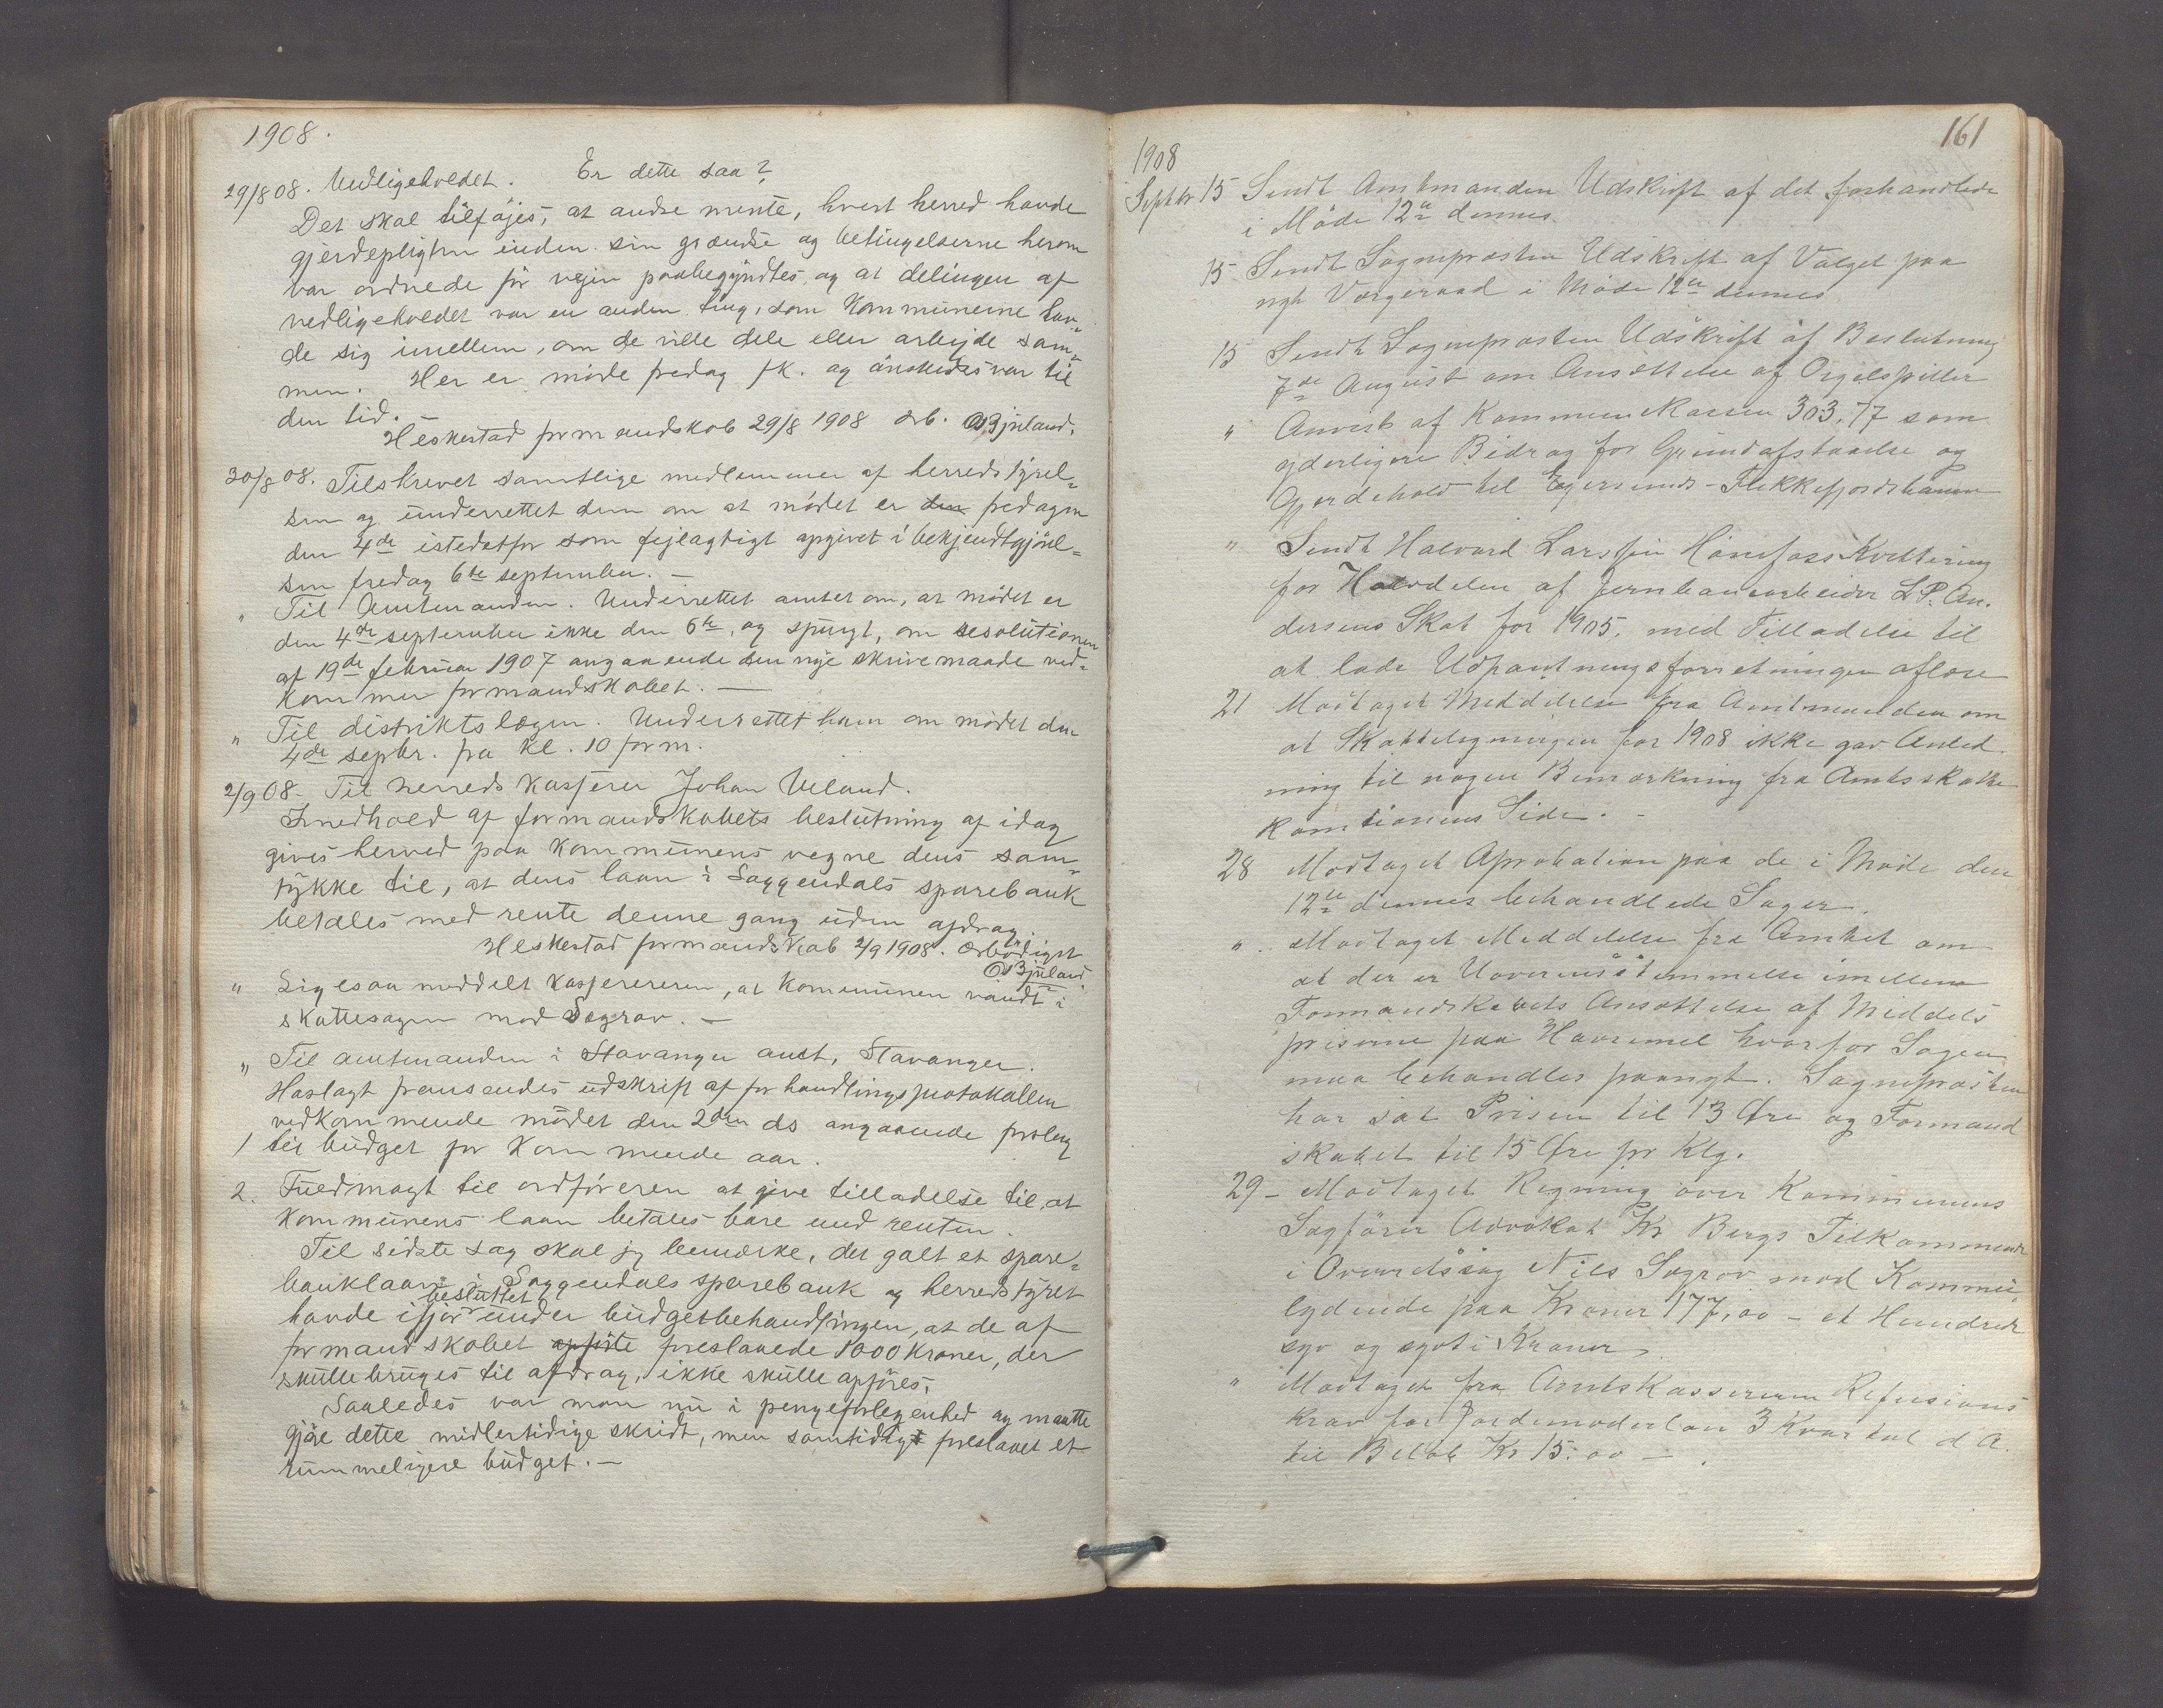 1908.
29/8 08. Vedligeholdet. Er dette saa?
Det skal tilføjes, at andre mente, hvert herred havde
gjerdepligten inden sin grændse og betingelserne herom
var ordnede før vejen paabegyndtes, og at delingen af
vedligeholdet var en anden ting, som Kommunerne hav-
de sig imellem, om de ville dele eller arbejde sam-
men. Her er møde fredag fk. og ønskedes svar til
den tid. —
Heskestad formandskab 29/8 1908 ærb. OBjuland.
30/8 08. Tilskrevet samtlige medlemmer af herredstyrel-
sen og underrettet dem om at mødet er den fredagen
den 4de istedetfor som fejlagtigt opgivet i bekjendtgjørel-
sen fredag 6te september. —
" Til Amtmanden. Underrettet amtet om, at mødet er
den 4de september ikke den 6te, og spurgt, om resolutionen
af 19de februar 1907 angaaende den nye skrivemaade ved-
kommer formandskabet. —
" Til distriktslægen. Underrettet ham om mødet den
4de septbr. fra kl. 10 form.
2/9 08. Til herredskasserer Johan Veland.
I henhold af formandskabets beslutning af idag
gives herved paa Kommunens vegne dens sam-
tykke til, at dens laan i Soggendals sparebank
betales med rente denne gang uden afdrag.
Heskestad formandskab 2/9 1908. Ærbødigst
OBjuland.
" Ligesaa meddelt kassereren, at kommunen vandt i
skattesagen mod Søgrov. —
" Til amtmanden i Stavanger amt, Stavanger.
Hoslagt fremsendes udskrift af forhandlingsprotokollen
vedkommende mødet den 2den ds angaaende forslag
1 til budget for Kommende aar.
2. Fuldmagt til ordføreren at give tilladelse til, at
Kommunens laan betales bare med renten.
Til sidste sag skal jeg bemærke, det galt et spare-
banklaan i Soggendals sparebank og herredstyret
besluttet
havde ifjor under budgetbehandlingen, at de af
formandskabet opførte foreslaaede 1000 Kroner, der
skulle bruges til afdrag, ikke skulle opføres.
Saaledes var man nu i pengeforlegenhed og maatte
gjøre dette midlertidige skridt, men samtidigt foreslaaet et
rummeligere budget. —
161
1908
Septbr 15 Sendt Amtmanden Udskrift af det forhandlede
i Møde 12te dennes
15 Sendt Sognepræsten Udskrift af Valget paa
nyt Værgeraad i Møde 12te dennes
15 Sendt Sognepræsten Udskrift af Beslutning
7de August om Ansættelse af Orgelspiller
" Anvist af Kommunekassen 303,77 som
yderligere Bidrag for Grundafstaaelse og
Gjerdehold til Egersunds-Flekkefjordsbanen
" Sendt Halvard Larssen Hønefoss Kvittering
for Halvdelen af Jernbanearbeider L.P. An-
dersens Skat for 1905, med Tilladelse til
at lade Udpantningsforretningen afløse
21 Modtaget Meddelelse fra Amtmanden om
at Skatteligningen for 1908 ikke gav Anled-
ning til nogen Bemærkning fra Amtsskatte
komisionens Side. -
28 Modtaget Aprobation paa de i Møde den
12te dennes behandlede Sager.
" Modtaget Meddelelse fra Amtet om
at der er Uoverensstemmelse imellem
Formandskabets Ansættelse af Middels
priserne paa Havremel hvorfor Sagen
maa behandles paanyt. Sognepræsten
har sat Prisen til 13 Øre og Formand
skabet til 15 Øre pr Klg.
29 - Modtaget Regning over Kommunens
Sagfører Advokat Kr Bergs Tilkommende
i Overretssag Nils Søgrov mod Kommu.
lydende paa Kroner 177,00 - et Hundrede
syv og sytti Kroner
" Modtaget fra Amtskassereren Refusions
krav for Jordemoderløn 3 Kvartal d A.
til Beløb Kr 15:00 —